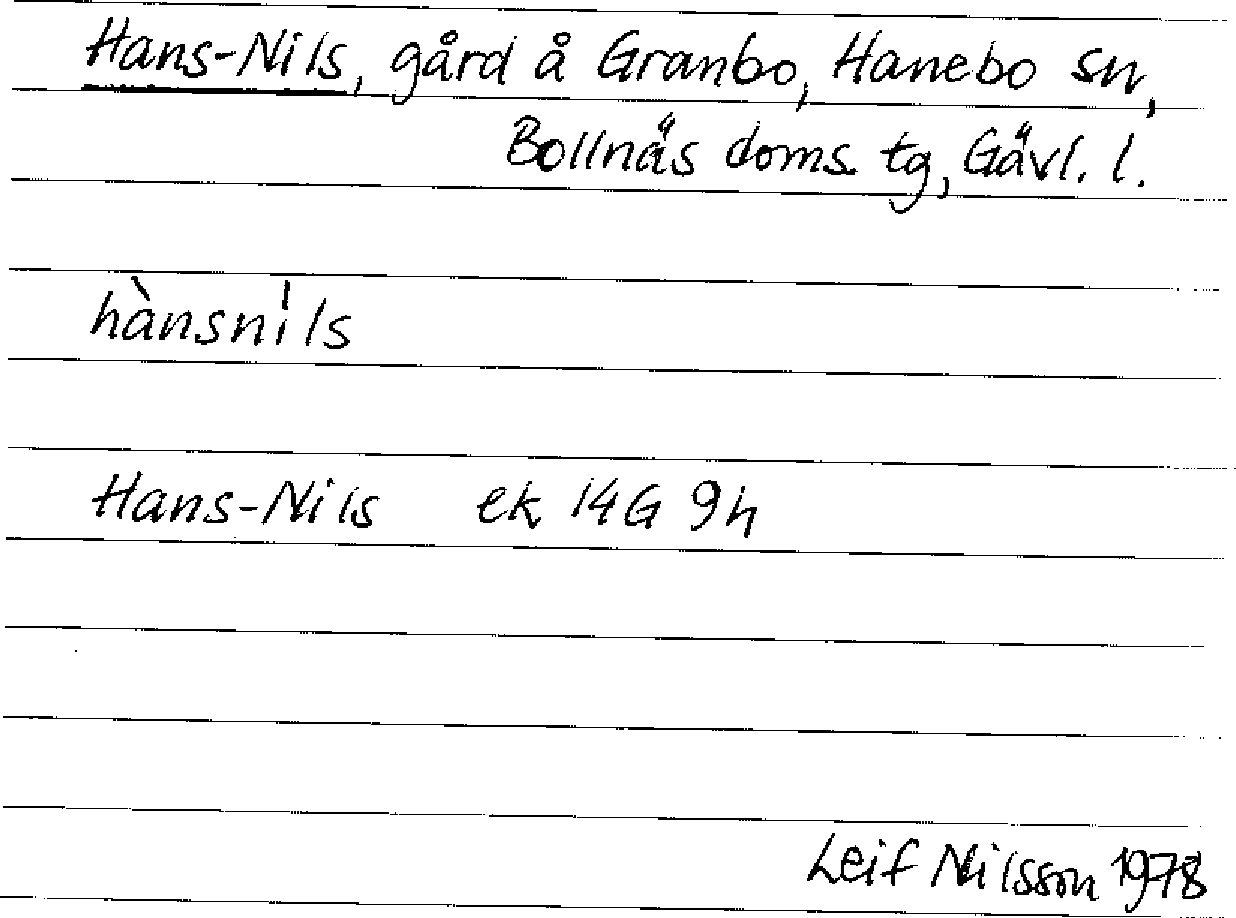 Hans-Nils, gård å Granbo, Hanebo sn,
Bollnäs doms. tg, Gävl. l.
hànsnìls
Hans-Nils ek 14G 9h
Leif Nilsson 1978